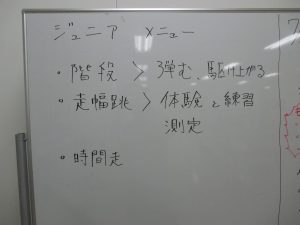 ジュニア メニュー
・階段 > 弾む、駆け上がる
・走幅跳 > 体験と練習
測定
・時間走